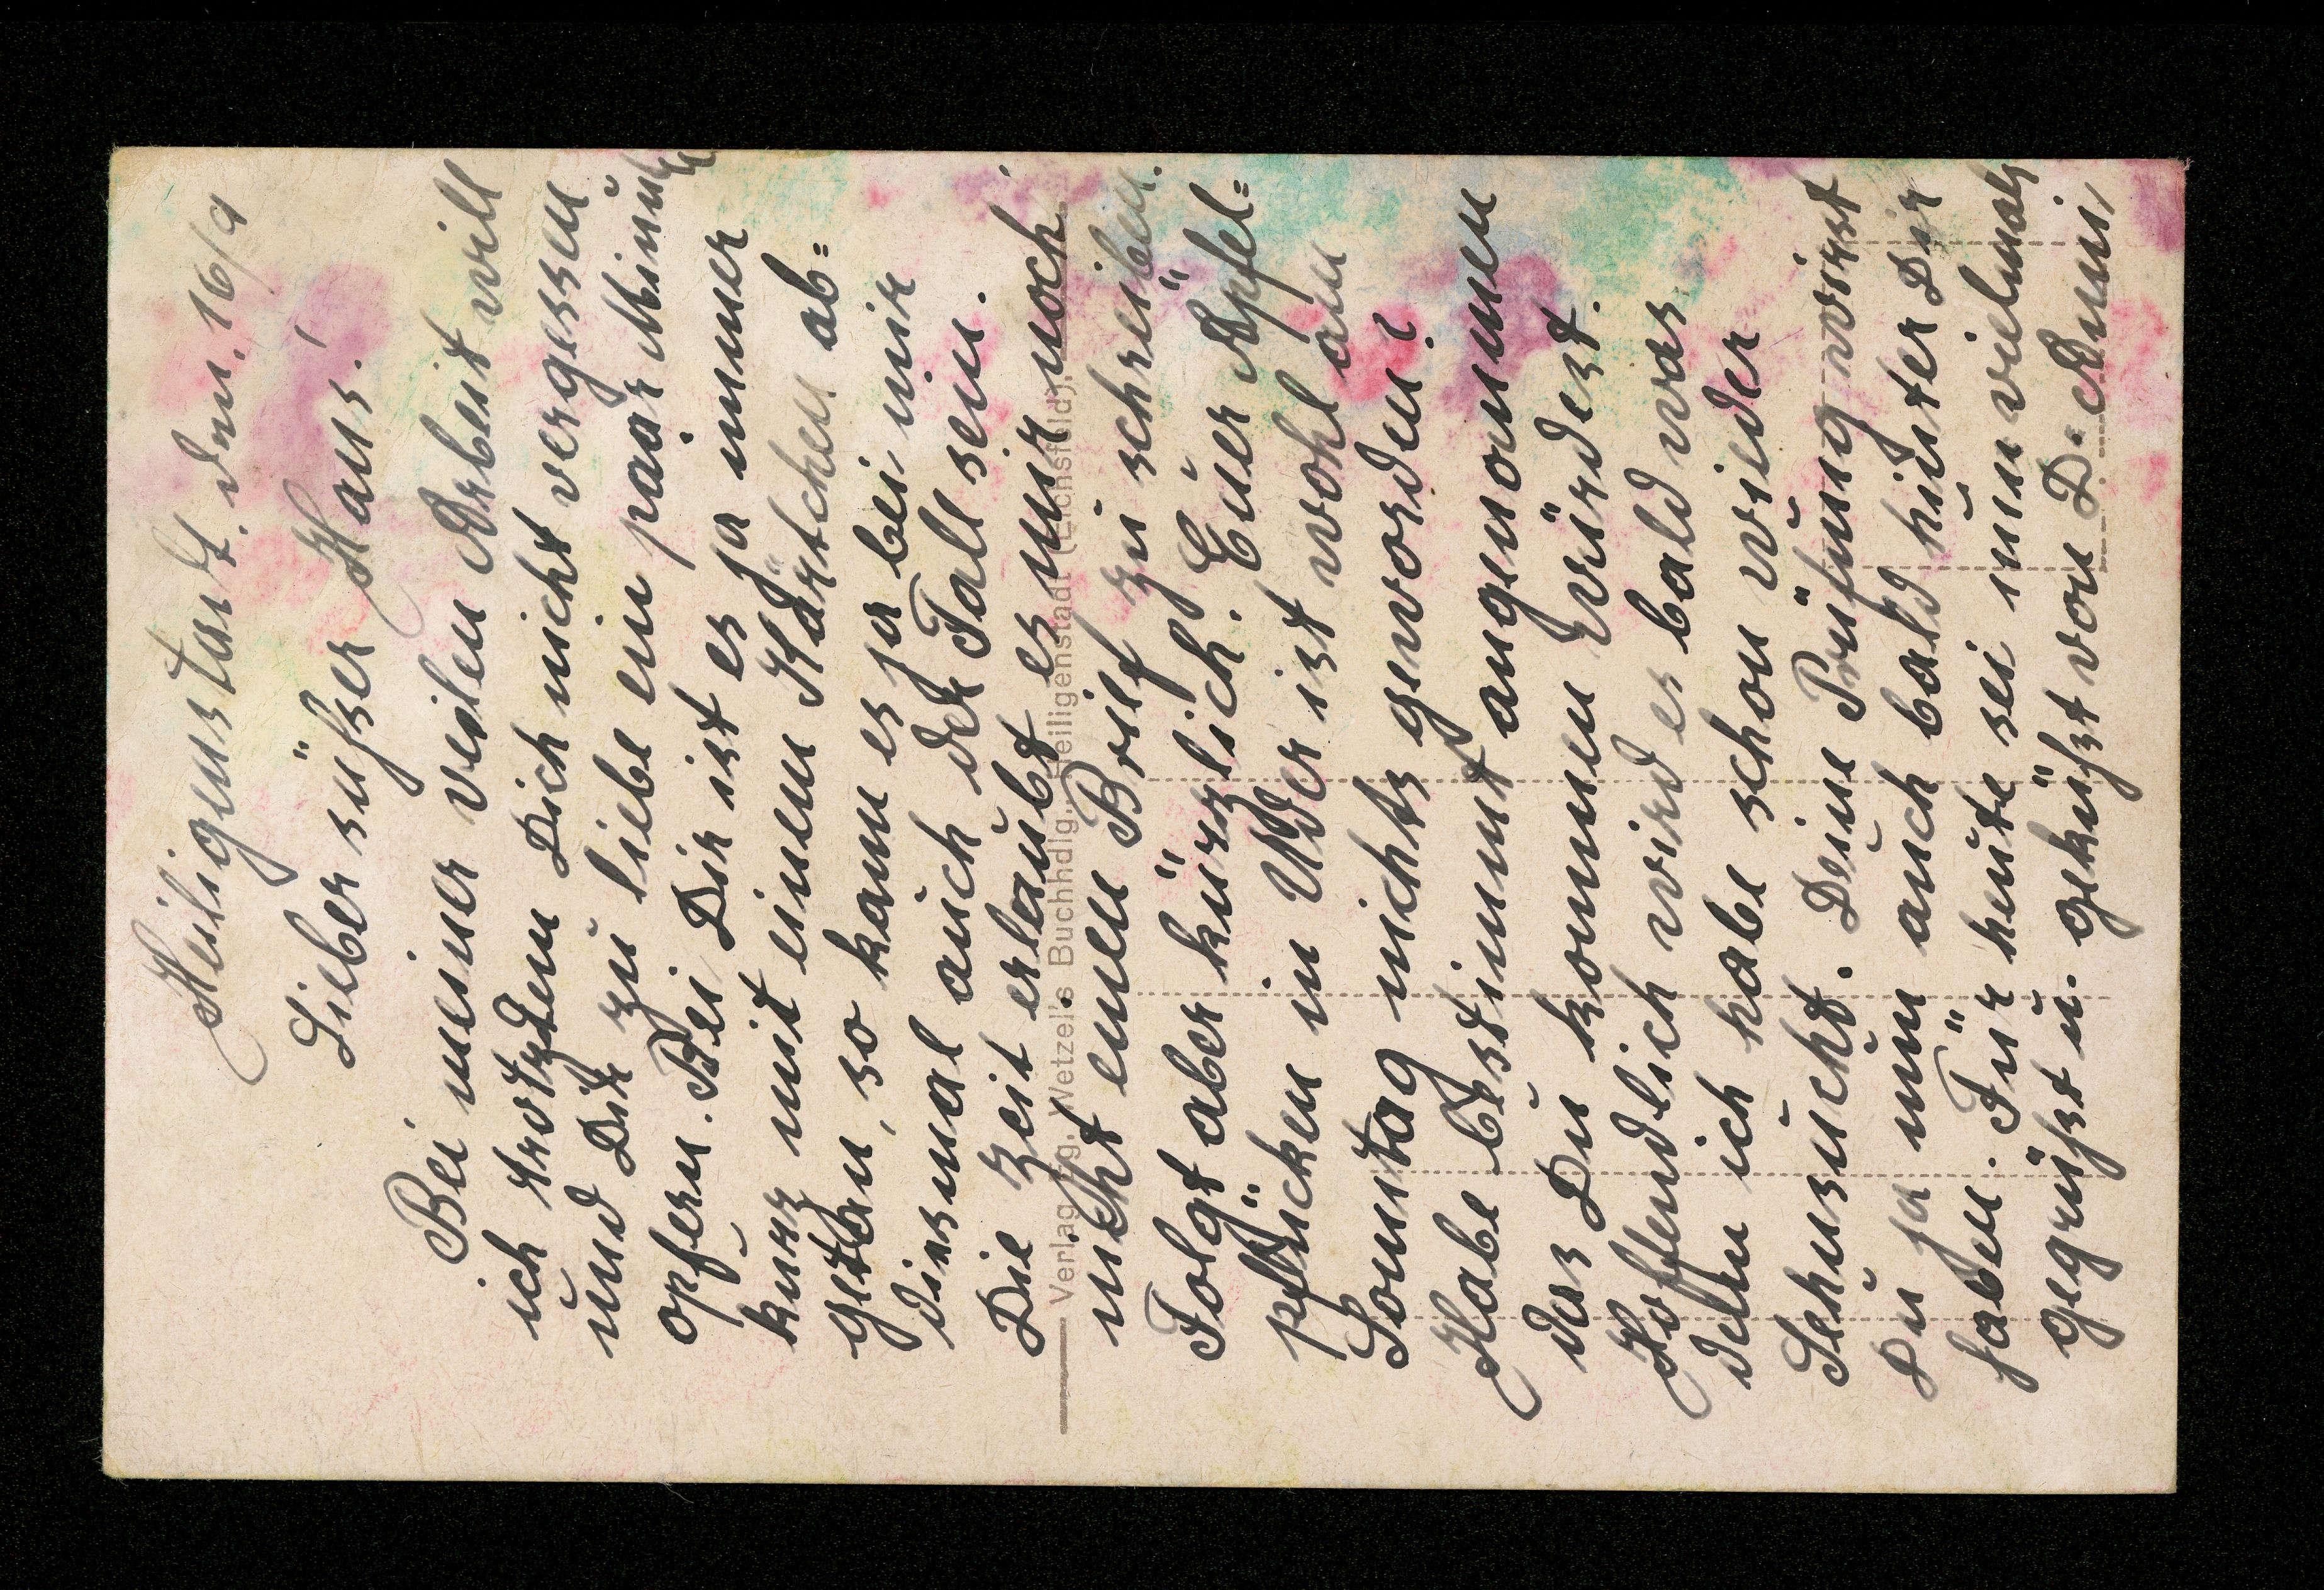 Heiligenstadt. den. 16/9
Lieber süßer Hans!
Bei meiner veilen Arbeit will
ich trotzdem Dich nicht vergessen
und Dir zu liebe ein paar Minuten
opfern. Bei Dir ist es ja immer
kurz mit einem Kärtchen ab=
getan, so kann es ja bei mir
diesmal auch der Fall sein.
Die Zeit erlaubt es mir noch
nicht enen Brief zu schreiben.
Folgt aber kürzlich. Euer Apfel=
pflücken in Uder ist wohl am
Sonntag nichts geworden?
Habe bestimmt angenommen
das Du kommen würdest.
Hoffendlich wird es bald was
denn ich habe schon wieder
Sehnsucht. Deine Prüfung wirst
Du ja nun auch bald hinter Dir
haben. Für heute sei nun vielmals
gegrüßt u. geküßt von D. Anni
Verlag Wetzel's Buchhdlg., Heiligenstadt (Eichsfeld).